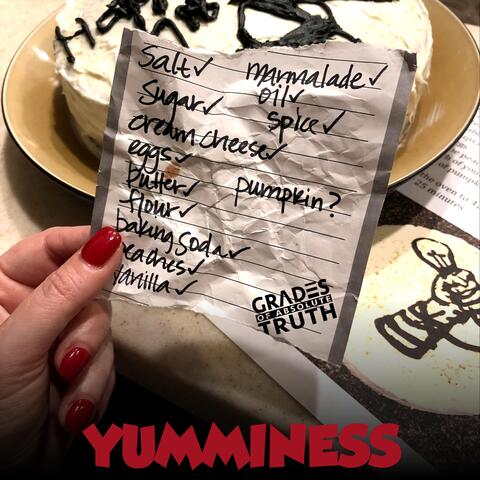 salt✓ marmalade✓
oil✓
sugar✓ spice✓
cream cheese✓
eggs✓
butter✓ pumpkin?
flour✓
baking soda✓
peaches✓
vanilla✓
GRADES
OF ABSOLUTE
TRUTH
of pump
the oven to 4
25 minutes
YUMMINESS